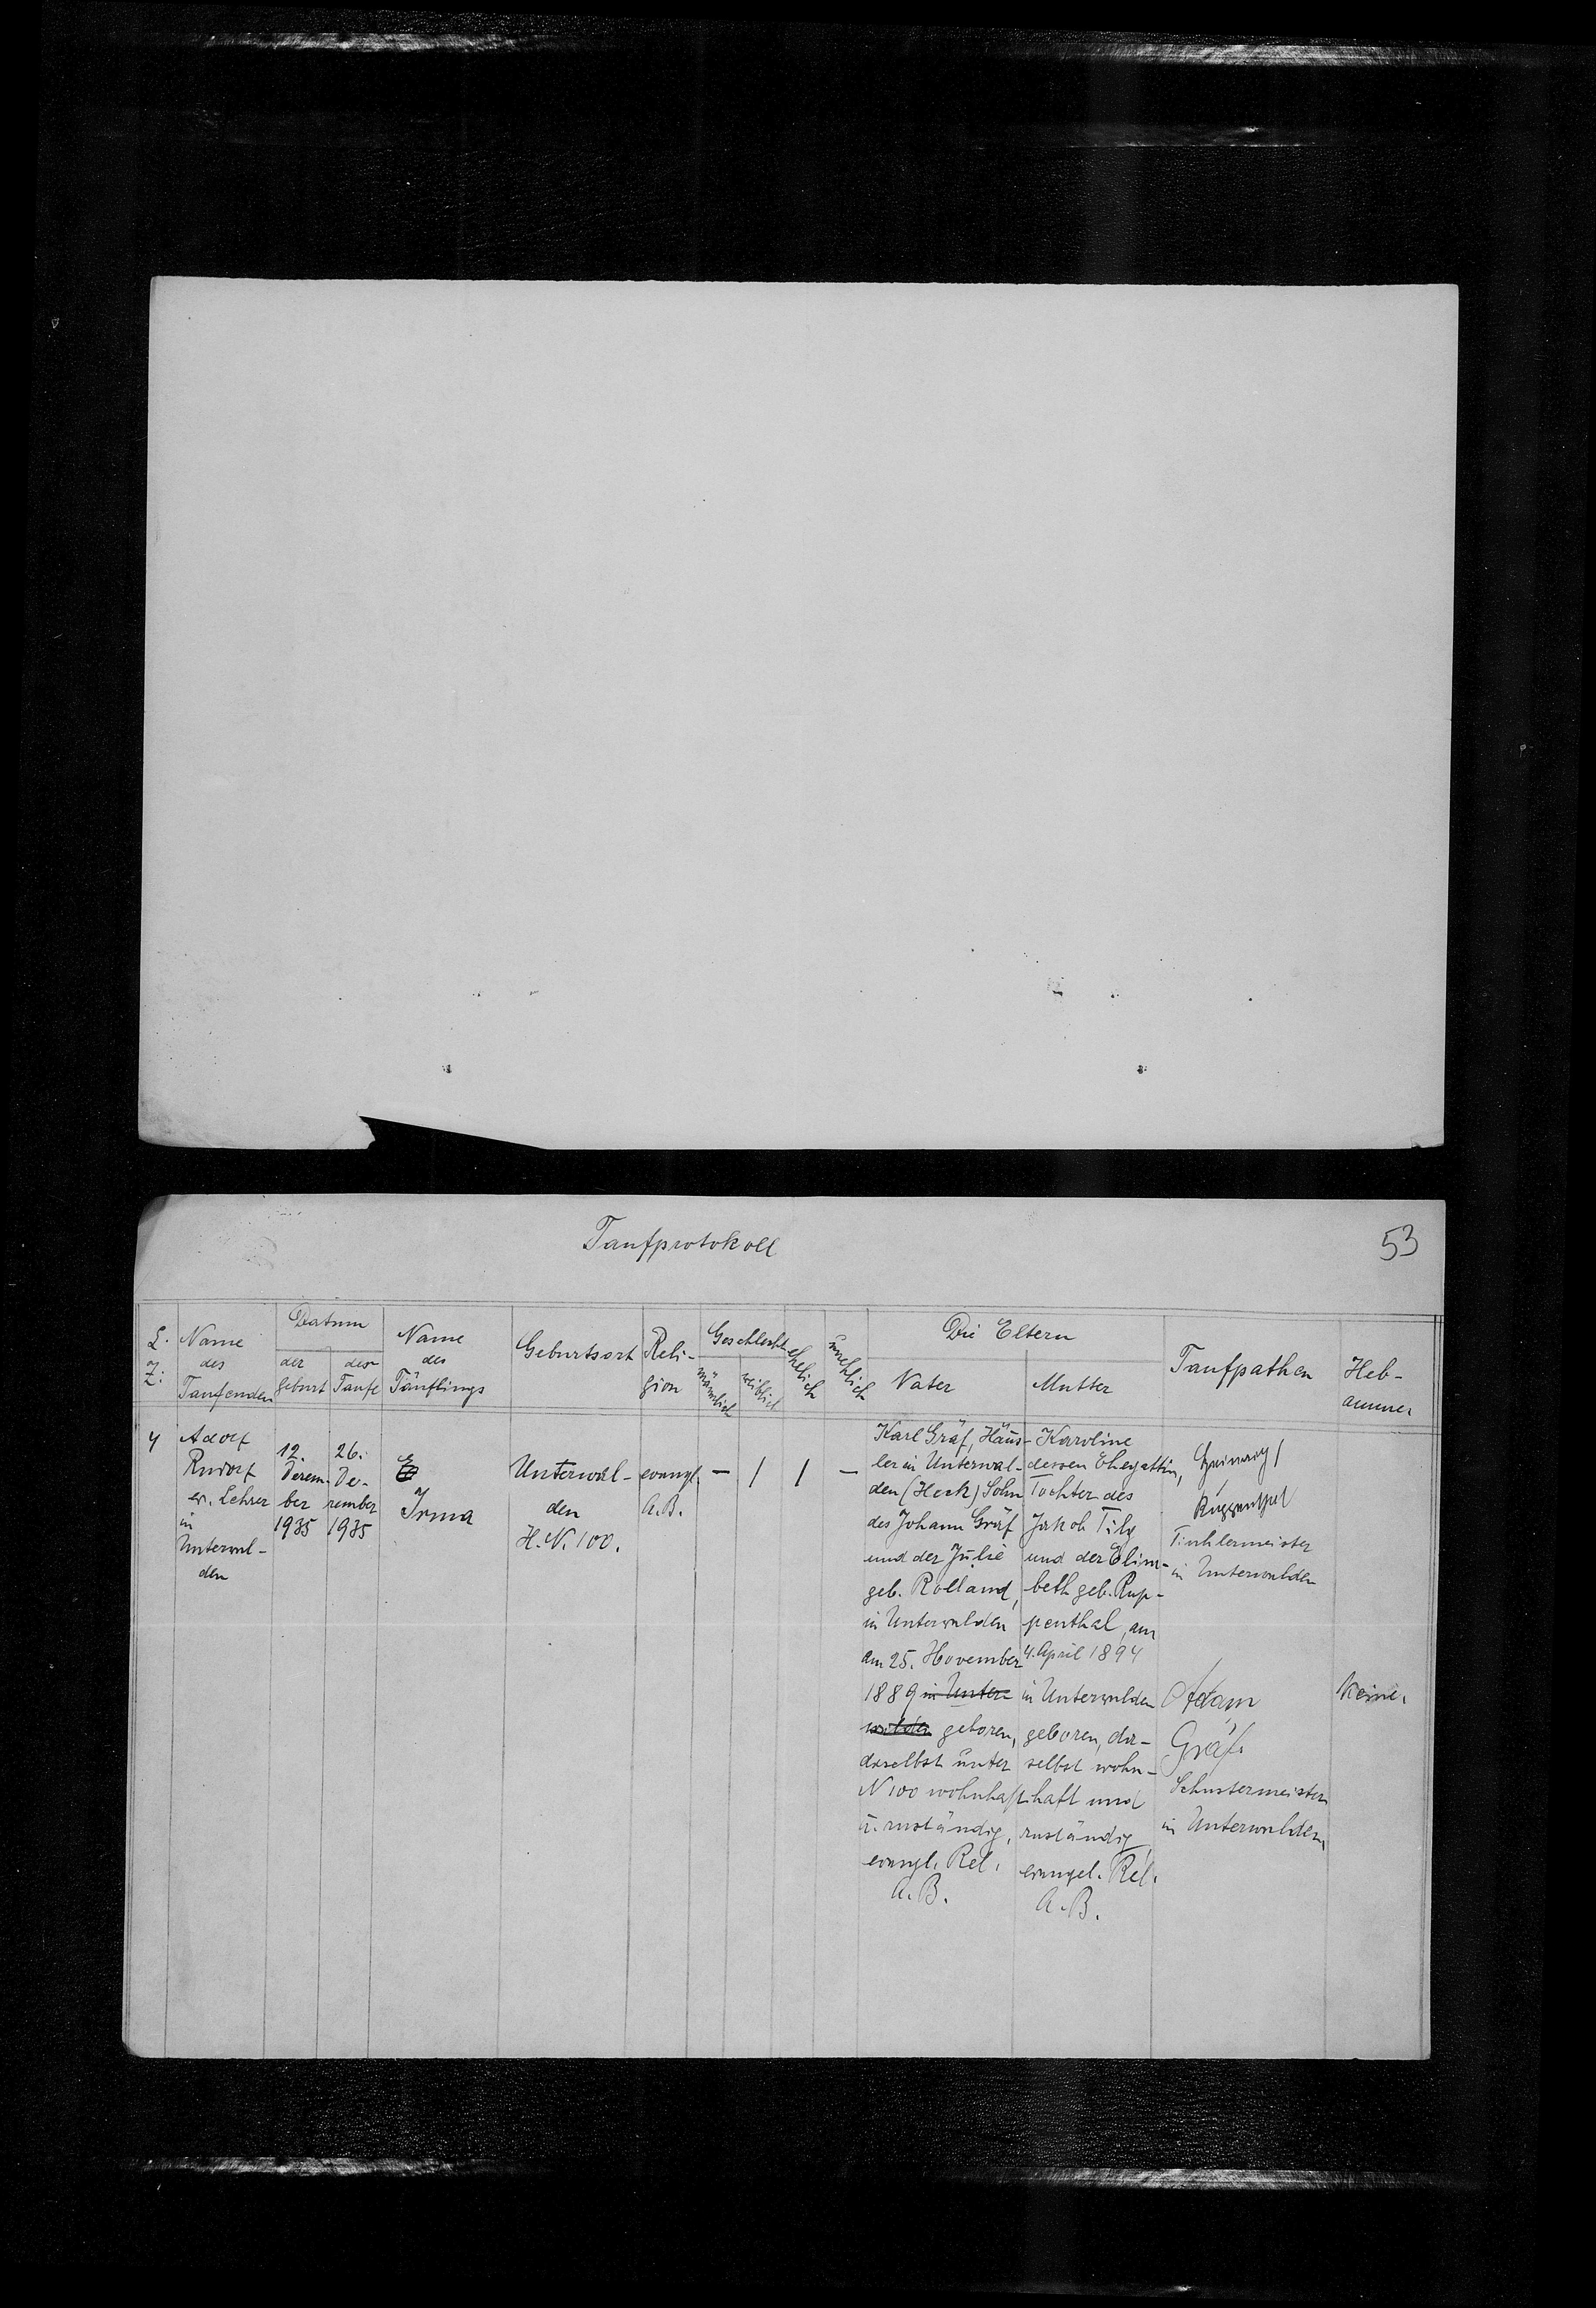 Taufprotokoll
53
L. Z:
Name des Taufenden
Datum
der Geburt
der Taufe
Name des Täuflings
Geburtsort
Religion
Geschlecht
männlich
weiblich
ehelich
unehlich
Die Eltern
Vater
Mutter
Taufpathen
Heb-
amme
4
Adolf
Rudolf
ev. Lehrer
in
Unterwal-
den
12.
Dezem-
ber
1935
26.
De-
zember
1935
Irma
Unterwal-
den
H. N. 100.
evangl.
A. B.
—
/
/
—
Karl Gräf, Häus-
ler in Unterwal-
den (Heck) Sohn
des Johann Gräf
und der Julie
geb. Rolland,
in Unterwalden
am 25. November
1889 in Unter-
walden geboren,
daselbst unter
N 100 wohnhaft
u. zuständig,
evangl. Rel.
A. B.
Karoline
dessen Ehegattin,
Tochter des
Jakob Tilg
und der Elisa-
beth geb. Rup-
penthal, am
4. April 1894
in Unterwalden
geboren, da-
selbst wohn-
haft und
zuständig
evangel. Rel.
A. B.
Heinrich
Ruppenthal
Tischlermeister
in Unterwalden
Adam
Gräf
Schustermeister
in Unterwalden
Keine.